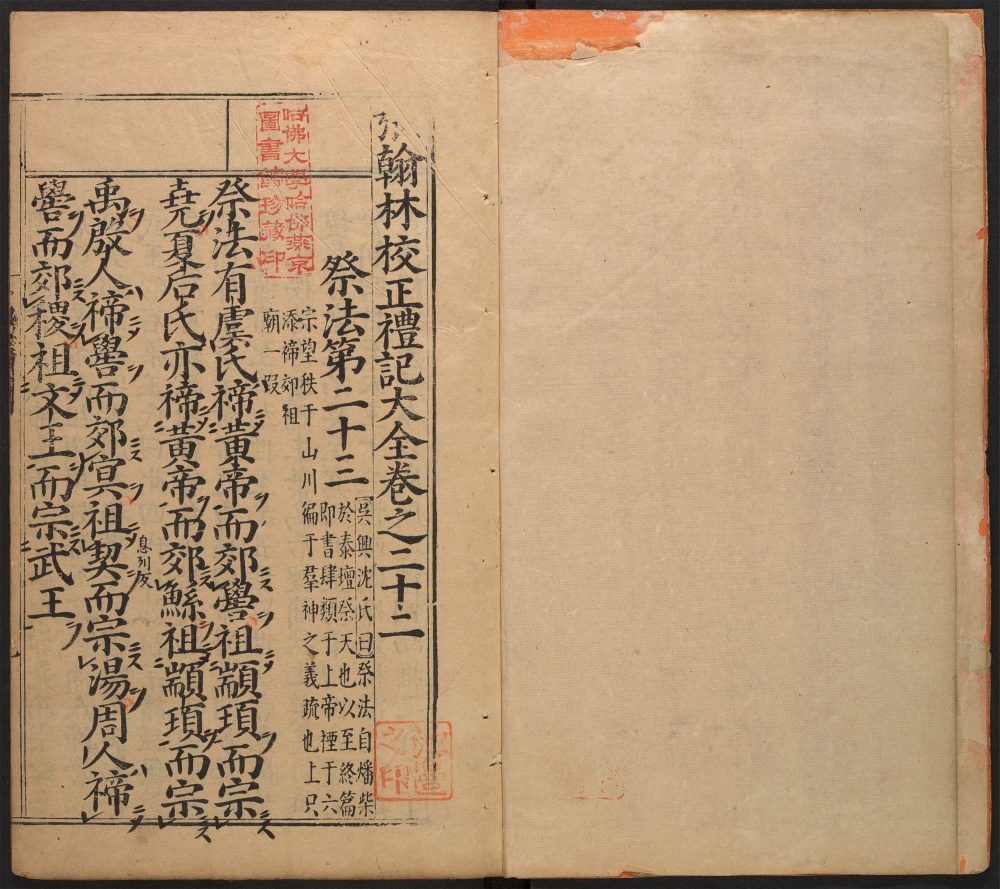 翰林校正禮記大全卷之二十二
祭法第二十三
吳興沈氏曰祭法自燔柴
於泰壇祭天也以至終篇
即書肆類于上帝禋于六
宗望秩于山川徧于羣神之義疏也上只
添禘郊祖
廟一段
祭法有虞氏禘黃帝而郊嚳祖顓頊而宗
堯夏后氏亦禘黃帝而郊鯀祖顓頊而宗
禹殷人禘嚳而郊冥祖契而宗湯周人禘
息列反
嚳而郊稷祖文王而宗武王
哈佛大學哈佛燕京
圖書館珍藏印
之印